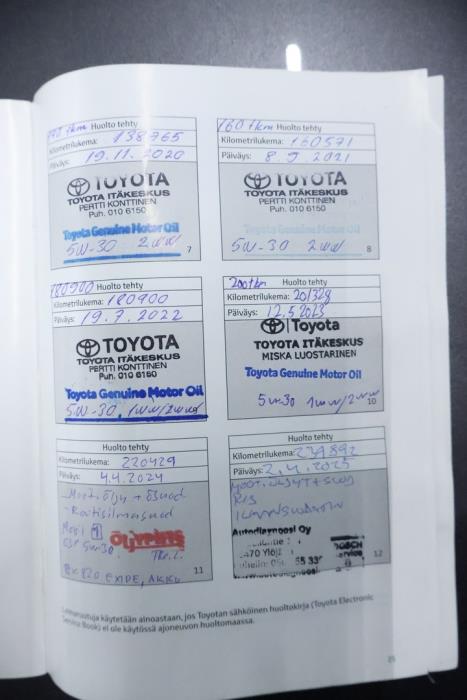 Huolto tehty
Kilometrilukema: 138765
Päiväys: 19.11.2020
TOYOTA
TOYOTA ITÄKESKUS
PERTTI KONTTINEN
Puh. 010 6150
Toyota Genuine Motor Oil
5W-30 2ww
7
160 tkm Huolto tehty
Kilometrilukema: 160571
Päiväys: 8 9 2021
TOYOTA
TOYOTA ITÄKESKUS
PERTTI KONTTINEN
Puh. 010 6150
Toyota Genuine Motor Oil
5W-30 2ww
8
180900 Huolto tehty
Kilometrilukema: 180900
Päiväys: 19.7.2022
TOYOTA
TOYOTA ITÄKESKUS
PERTTI KONTTINEN
Puh. 010 6150
Toyota Genuine Motor Oil
5W-30, 1ww/2ww
200tkm Huolto tehty
Kilometrilukema: 201329
Päiväys: 12.5.2023
Toyota
TOYOTA ITÄKESKUS
MISKA LUOSTARINEN
Toyota Genuine Motor Oil
5W-30 1ww/2ww
10
Huolto tehty
Kilometrilukema: 220429
Päiväys: 4.4.2024
- Moot.öljy + ösuod
- Raitisilmasuod
Mobil 1
5W-30
11
Huolto tehty
Kilometrilukema: 239892
Päiväys: 2.4.2025
Autodiagnoosi Oy
BOSCH
12
Leimaruutuja käytetään ainoastaan, jos Toyotan sähköinen huoltokirja (Toyota Electronic
Service Book) ei ole käytössä ajoneuvon huoltomaassa.